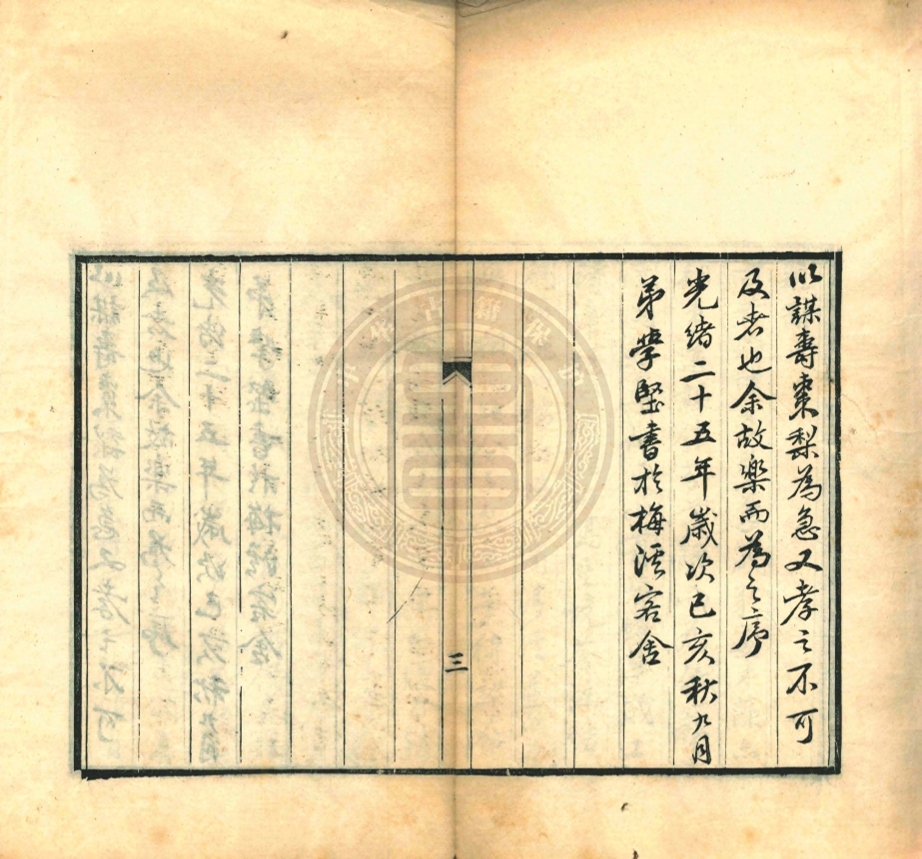 以謀壽棗梨為急又孝之不可
及者也余故樂而為之序
光緒二十五年歲次己亥秋九月
弟學堅書於梅溪客舍
三